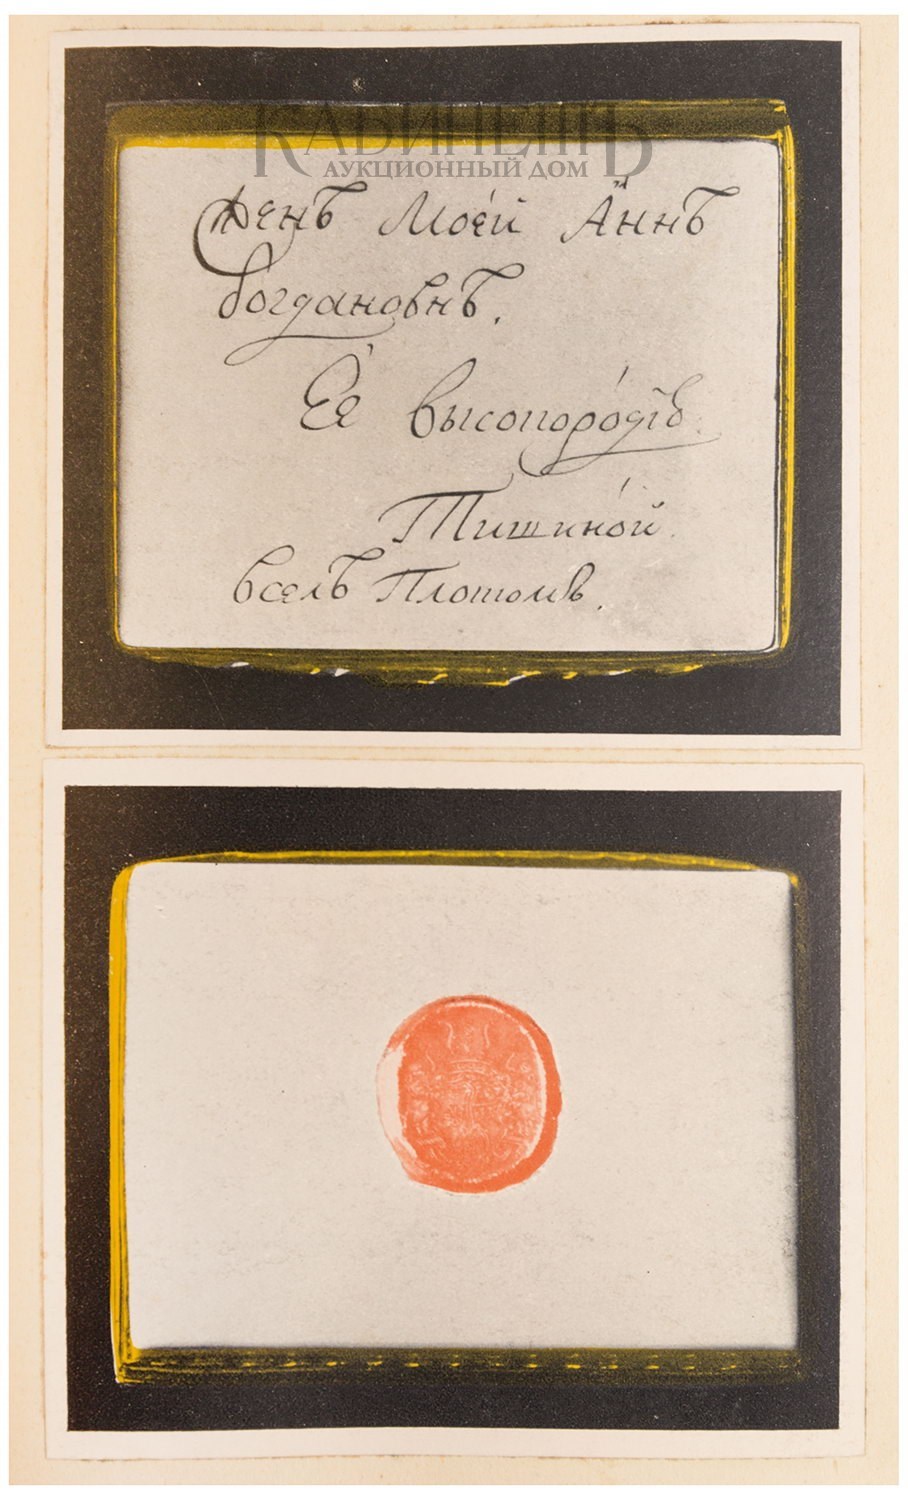 КАБИНЕТЪ
АУКЦИОННЫЙ ДОМ
Женѣ Моей Аннѣ
богдановнѣ.
Ее высокородїю
Тишиной.
вселѣ